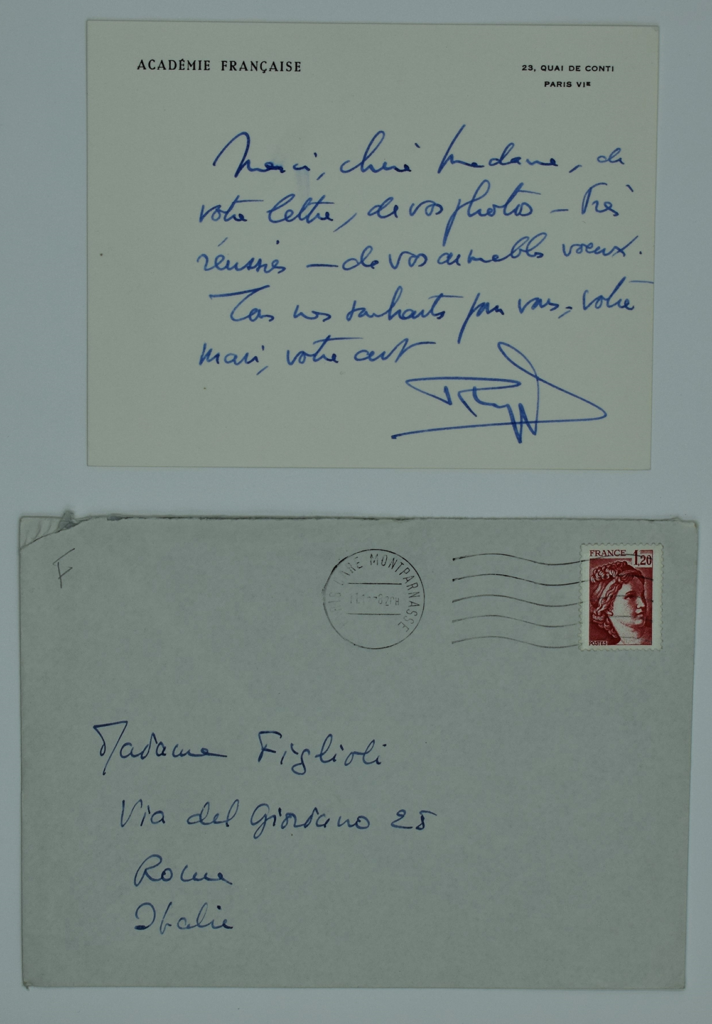 ACADÉMIE FRANÇAISE
23, QUAI DE CONTI
PARIS VIᴱ
Merci, chère Madame, de
votre lettre, de vos photos – Très
réussies – de vos aimables voeux.
Tous nos souhaits pour vous, votre
mari, votre art
F
GARE MONTPARNASSE
FRANCE 1,20
POSTES
Madame Figlioli
Via del Giordano 28
Rome
Italie